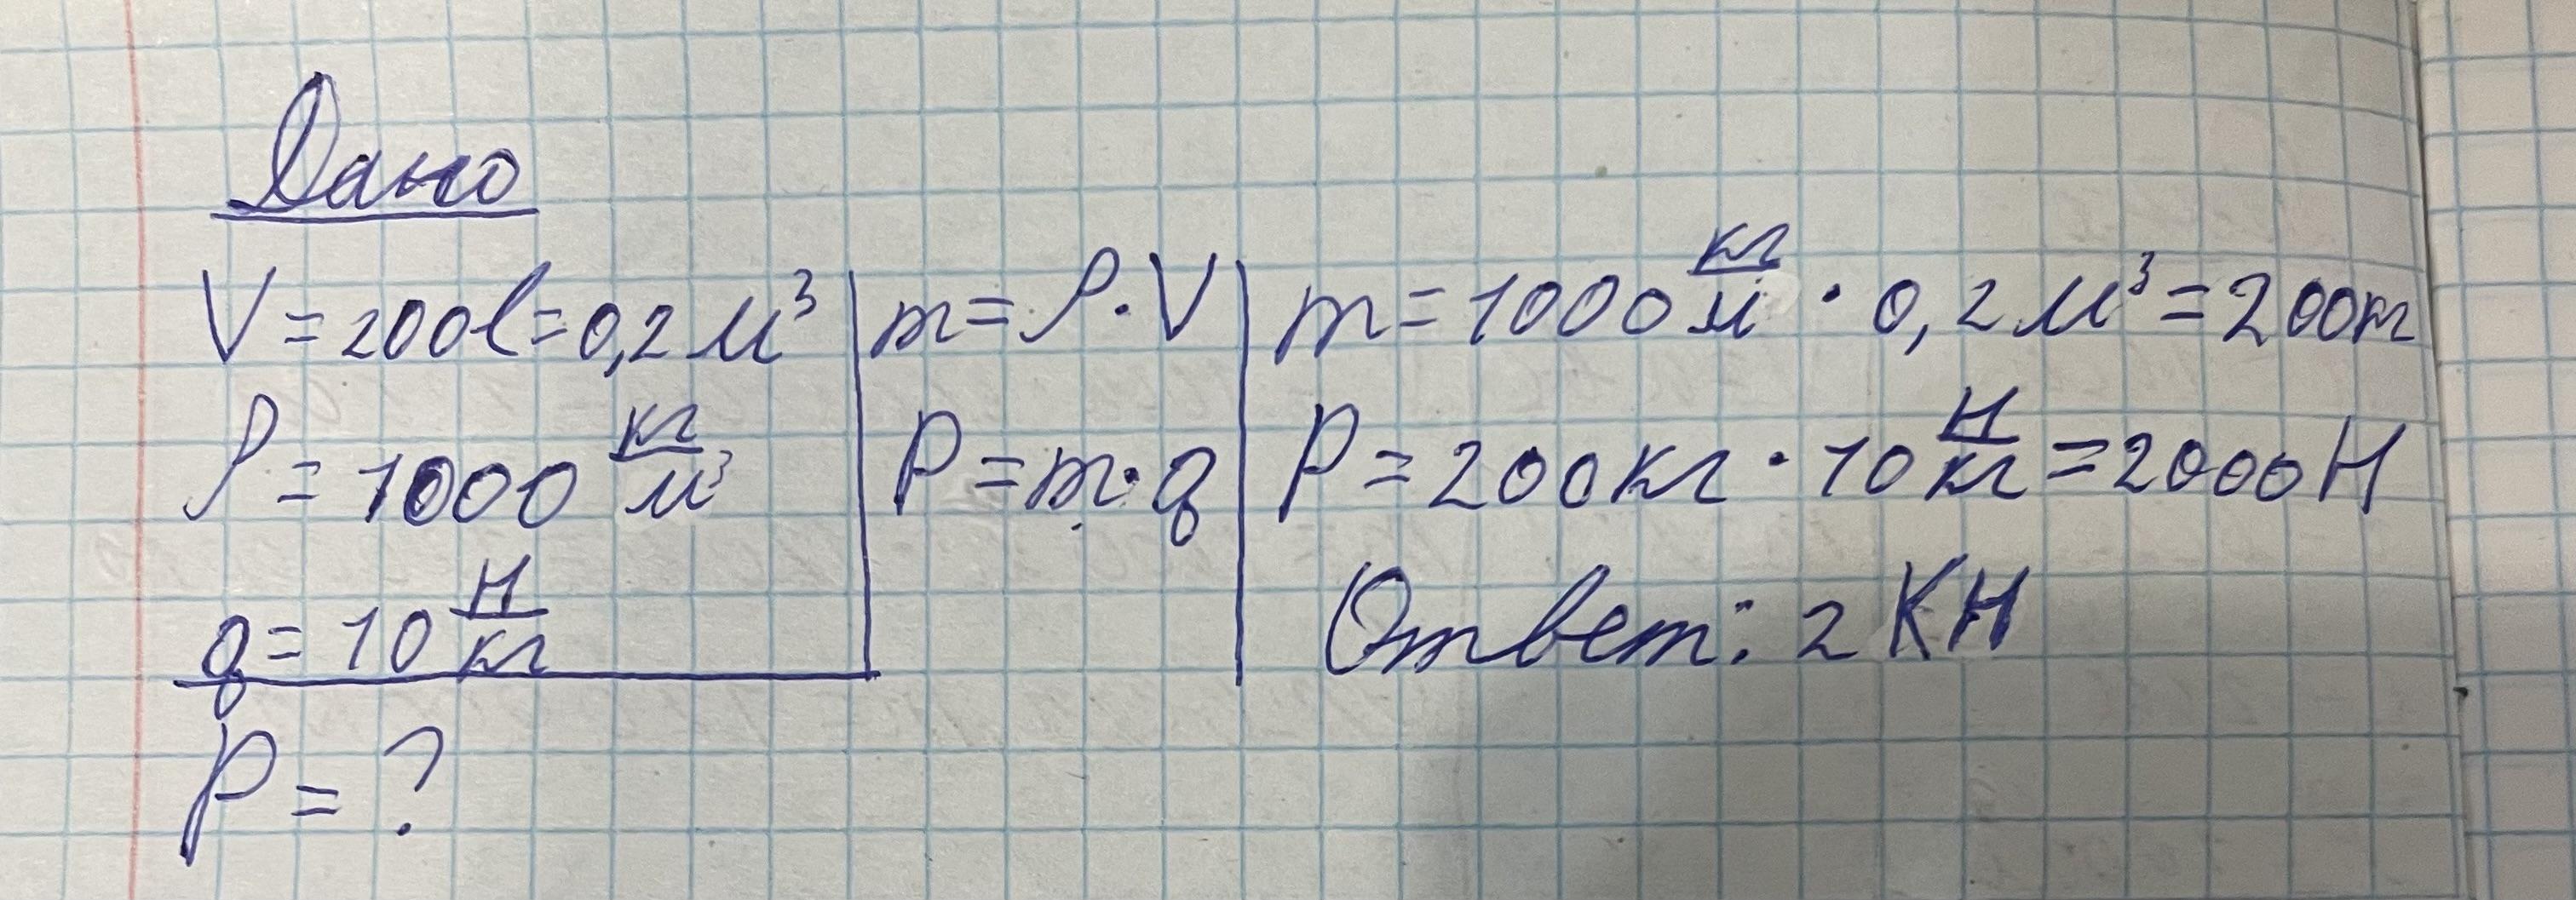 Дано
V=200l=0,2м³
ρ=1000 кг/м³
g=10 Н/кг
P=?
m=ρ·V
P=m·g
m=1000 кг/м · 0,2м³=200т
P=200кг·10 Н/кг=2000Н
Ответ: 2КН